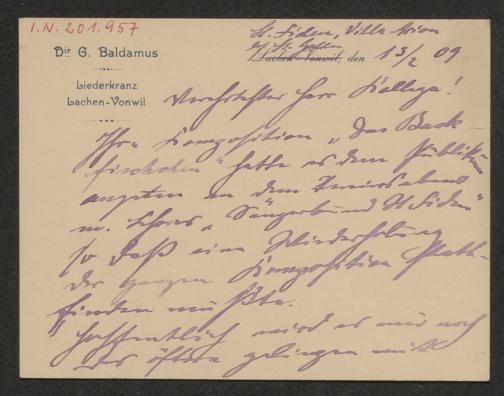 I.N. 201.957
Dir G. Baldamus
Liederkranz
Lachen-Vonwil
St. Fiden, Villa Arion
b/ St. Gallen
Lachen-Vonwil, den 13/2 09
Verehrtester Herr Kollega!
Ihre Komposition „Das Back-
fischchen" hatte es dem Publikum
angetan an dem Vereinsabend
m. Chores „Sängerbund St. Fiden"
so daß eine Wiederholung
der ganzen Komposition statt-
finden mußte.
Hoffentlich wird es mir noch
des öftern gelingen mit